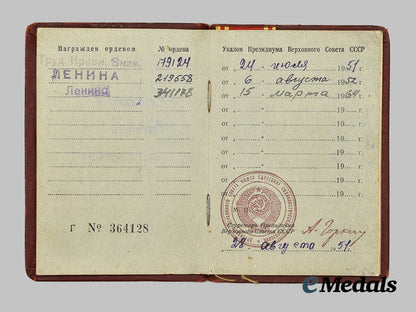 Награжден орденом № ордена
Труд. Красн. Знам. 179124
ЛЕНИНА 219558
Ленина 341128
Г № 364128
Указом Президиума Верховного Совета СССР
от 24 июля 1951 г.
от 6 августа 1952 г.
от 15 марта 19 г.
от 19 г.
от 19 г.
от 19 г.
от 19 г.
от 19 г.
М. П.
Секретарь Президиума
Верховного Совета СССР А. Горкин
28 августа 1951
eMedals